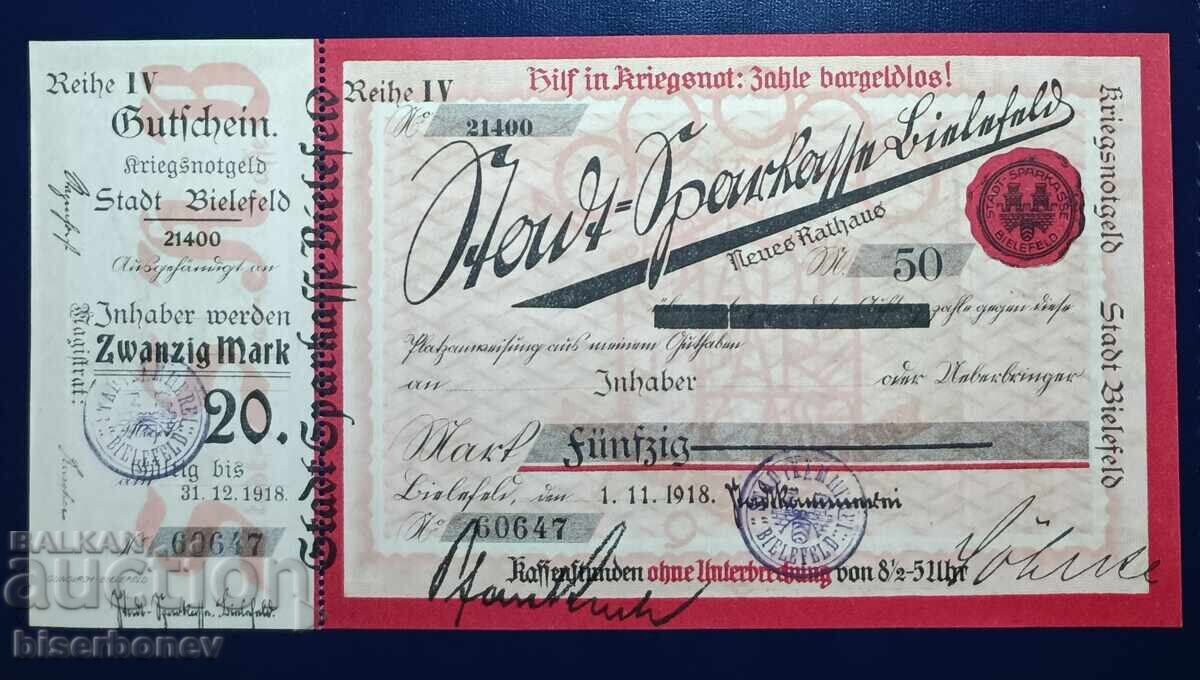 Reihe IV
Gutschein.
Kriegsnotgeld
Stadt Bielefeld
21400
Ausgehändigt an
Inhaber werden
Zwanzig Mark
20.
Magistrat:
Gültig bis
31.12.1918.
No 60647
GUNDLACH BIELEFELD
Stadt-Sparkasse Bielefeld.
STADTKÄMMEREI
BIELEFELD
Stadt-Sparkasse Bielefeld
Reihe IV
Hilf in Kriegsnot: Zahle bargeldlos!
No 21400
Stadt-Sparkasse Bielefeld
Neues Rathaus
STADT-SPARKASSE
BIELEFELD
M. 50
zahle gegen diese
Platzanweisung aus meinem Guthaben
an Inhaber oder Ueberbringer
Mark Fünfzig
Bielefeld, den 1.11.1918. Stadtkämmerei
No 60647
STADTKÄMMEREI
BIELEFELD
Kassenstunden ohne Unterbrechung von 8½-5 Uhr
Kriegsnotgeld Stadt Bielefeld
BALKAN
auction
biserbonev